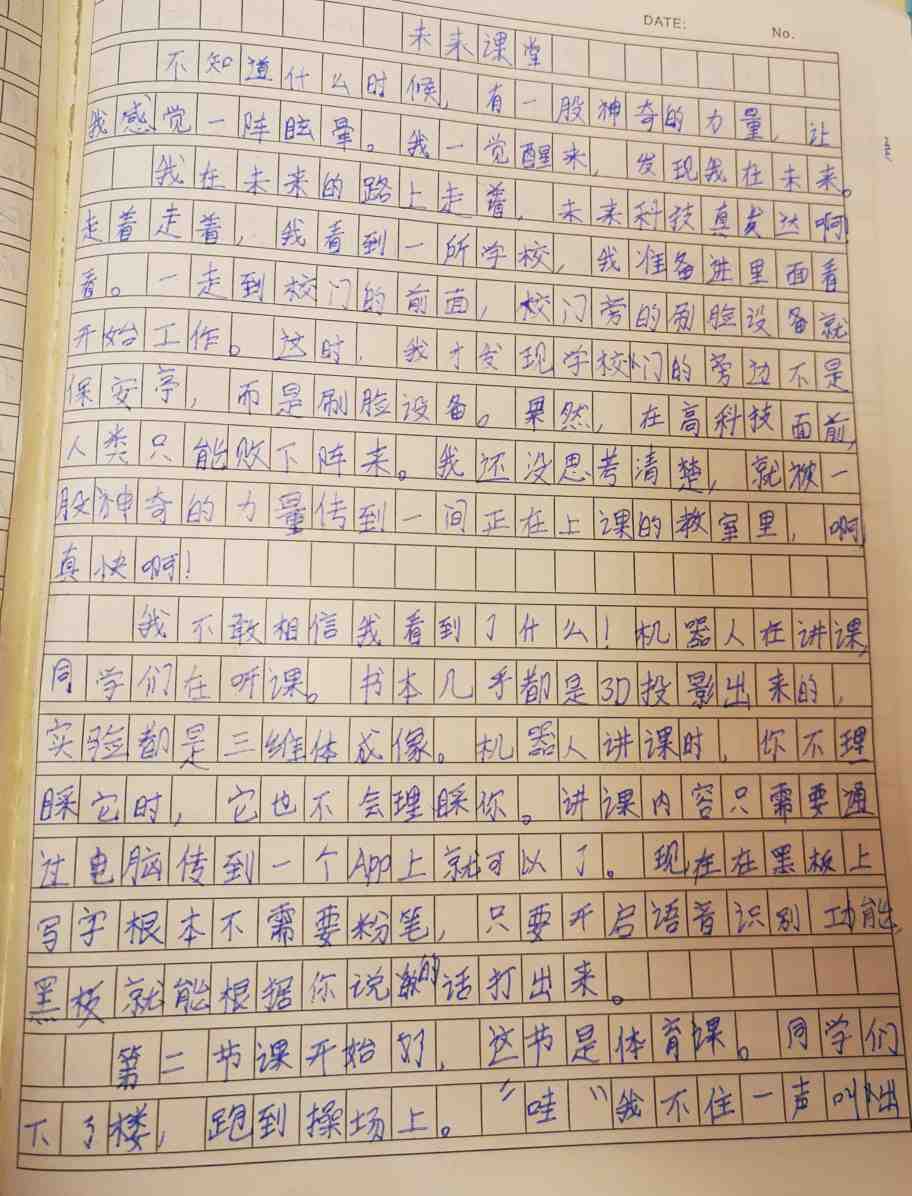 DATE:
No.
未来课堂
不知道什么时候，有一股神奇的力量，让
我感觉一阵眩晕。我一觉醒来，发现我在未来。
我在未来的路上走着，未来科技真发达啊
走着走着，我看到一所学校，我准备进里面看
看。一走到校门的前面，校门旁的刷脸设备就
开始工作。这时，我才发现学校门的旁边不是
保安亭，而是刷脸设备。果然，在高科技面前，
人类只能败下阵来。我还没思考清楚，就被一
股神奇的力量传到一间正在上课的教室里，啊，
真快啊！
我不敢相信我看到了什么！机器人在讲课，
同学们在听课。书本几乎都是3D投影出来的，
实验都是三维体成像。机器人讲课时，你不理
睬它时，它也不会理睬你。讲课内容只需要通
过电脑传到一个App上就可以了。现在在黑板上
写字根本不需要粉笔，只要开启语音识别功能，
黑板就能根据你说的话打出来。
第二节课开始了，这节是体育课。同学们
下了楼，跑到操场上。“哇”我不住一声叫出